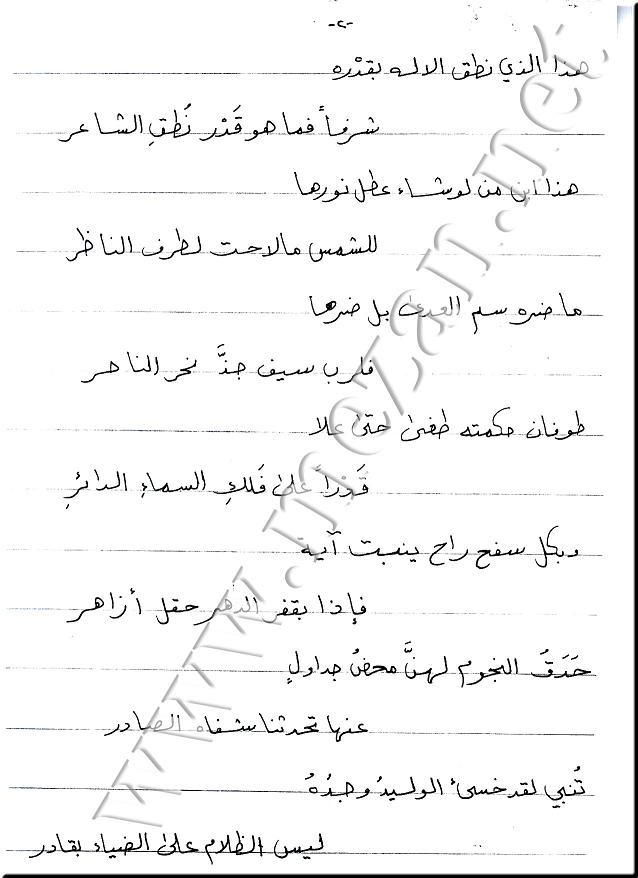 -٢-
هذا الذي نطق الاله بقدْره
شرفاً فما هو قَدْر نُطقِ الشاعر
هذا ابن من لو شاء عطل نورها
للشمس ما لاحت لطرف الناظر
ما ضره سم العدى بل ضرها
فلرب سيف جذَّ نحر الناحر
طوفان حكمته طغى حتى علا
قَدْراً على فَلكِ السماءِ الدائرِ
وبكل سفح راح ينبت آية
فإذا بقفر الدهر حقل أزاهر
حَدَقُ النجوم لهنَّ محضُ جداولٍ
عنها تحدثنا شفاه الصادر
تُنبي لقد خسئ الوليدُ وجدُهُ
ليس الظلام على الضياء بقادر